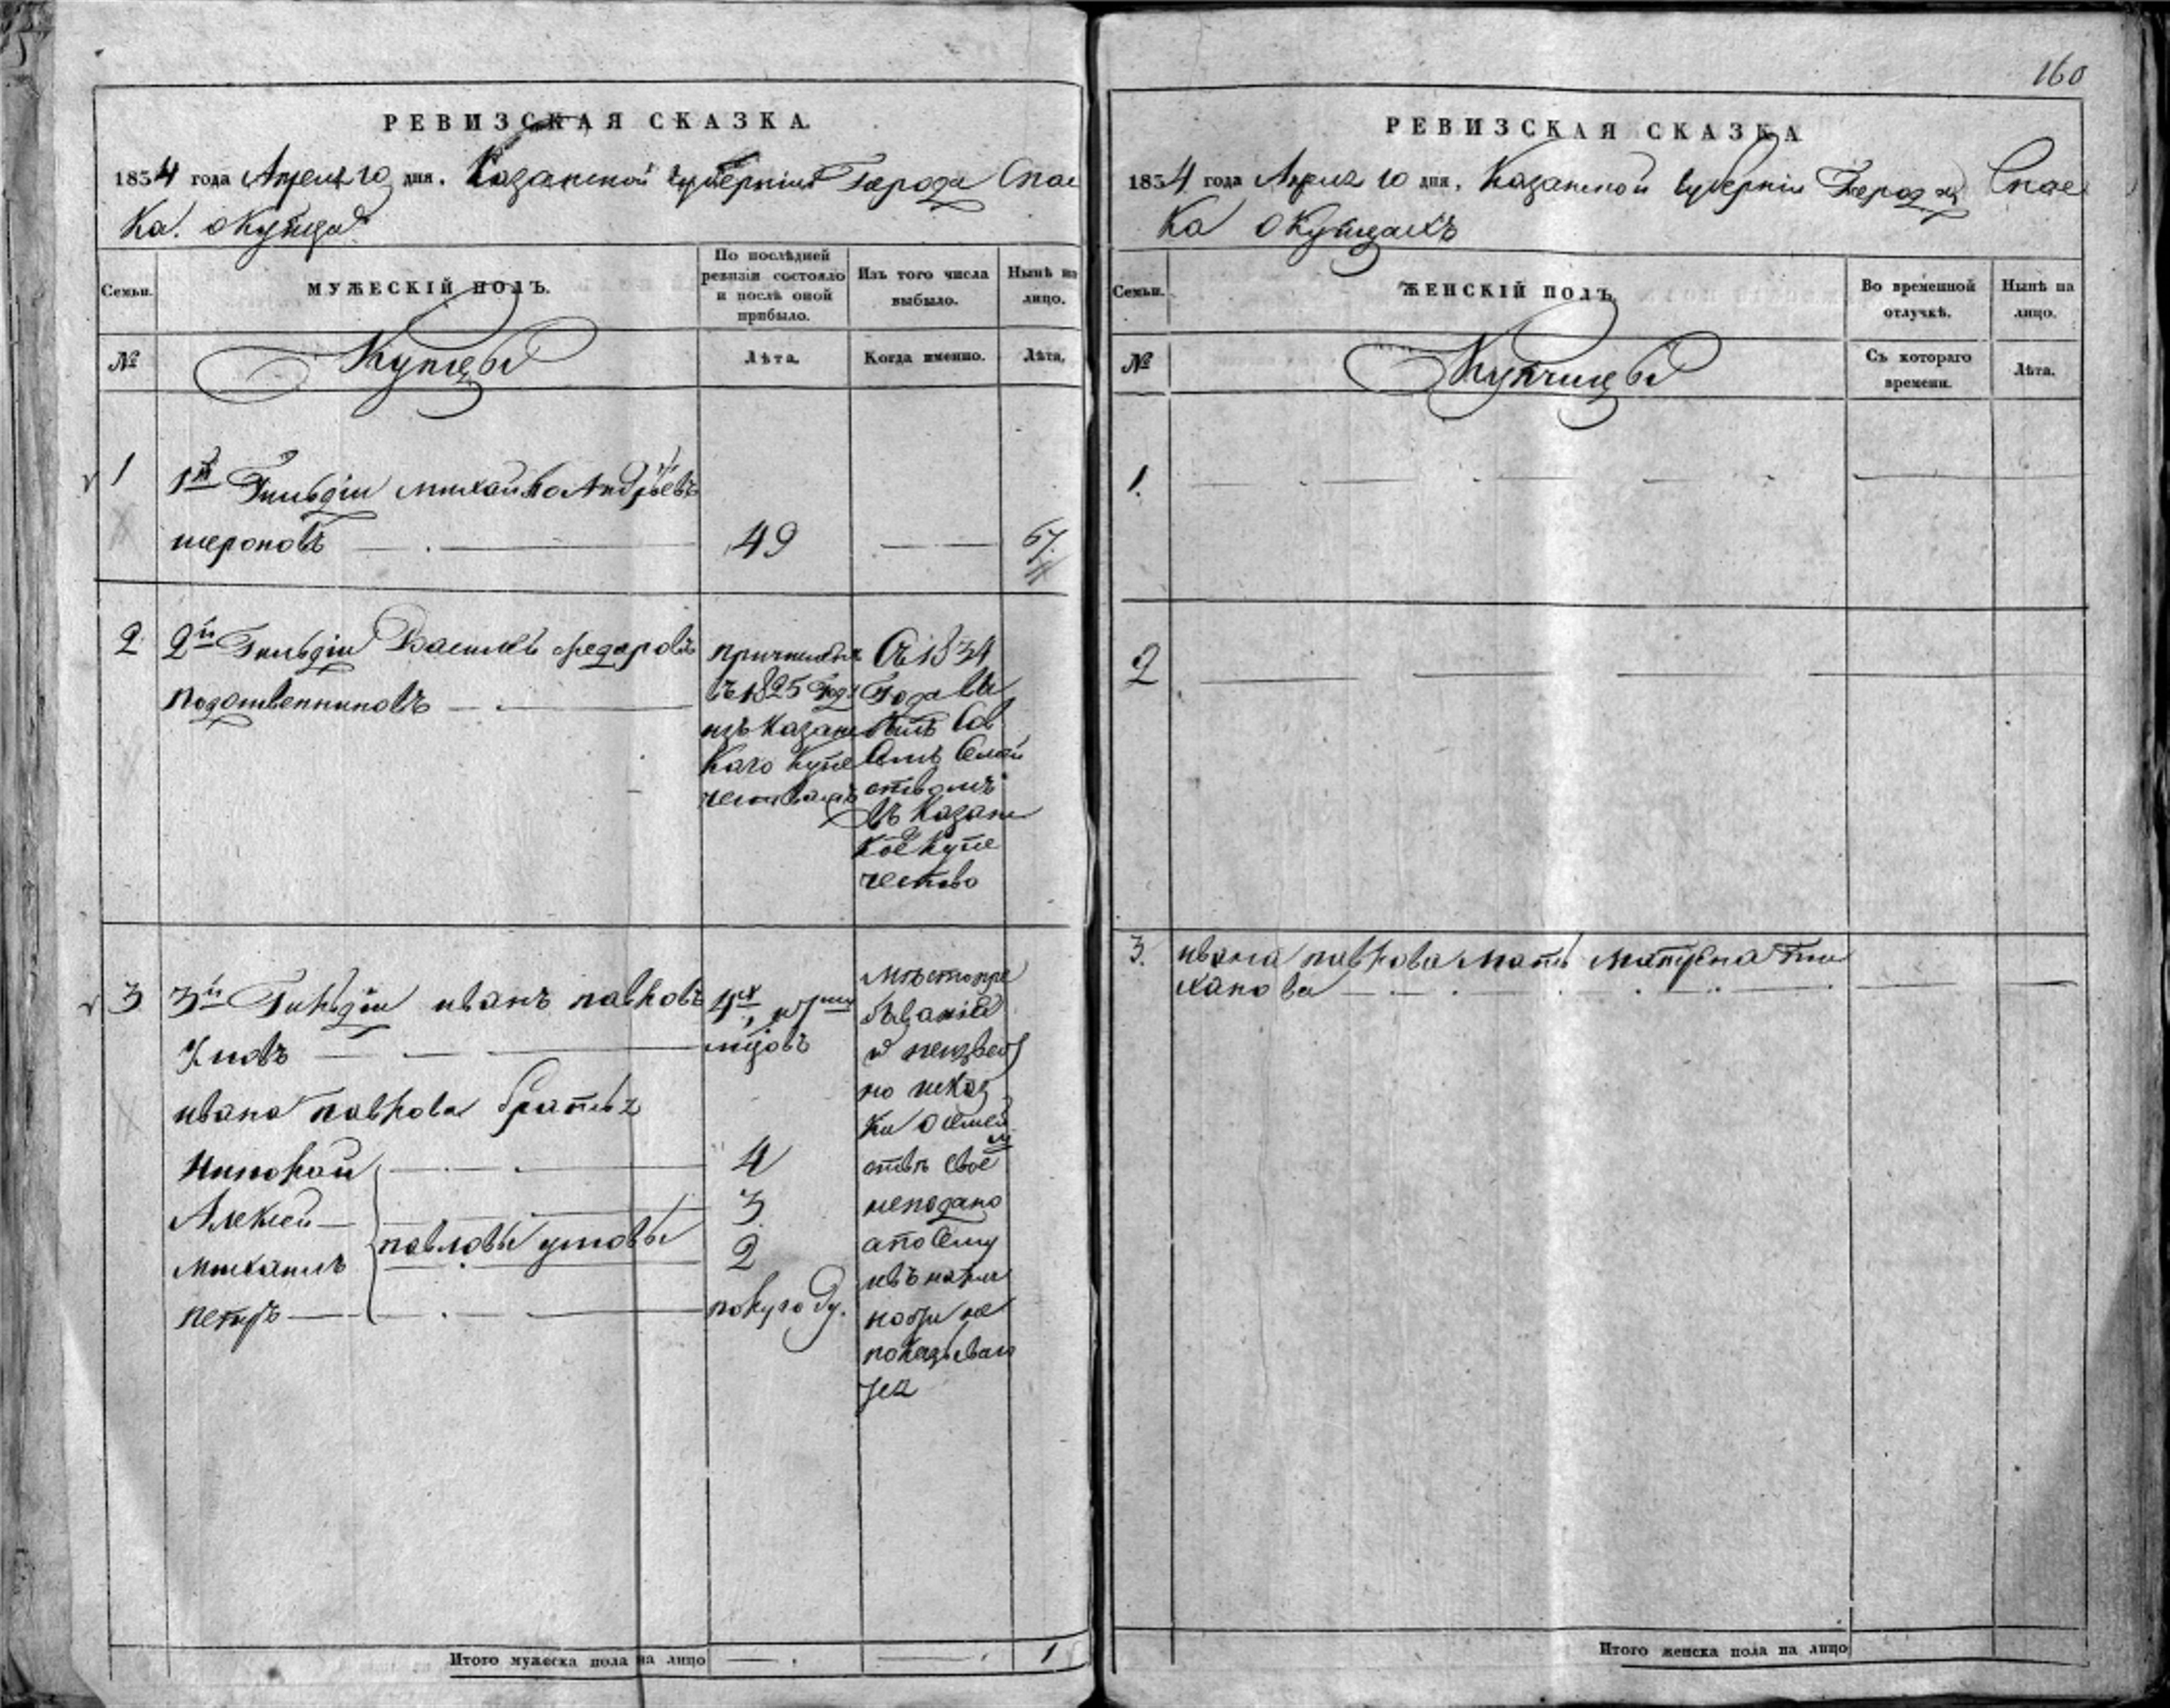 160
РЕВИЗСКАЯ СКАЗКА.
1834 года Апреля 10 дня. Казанской губернии Города Спас
ка. о купцахъ
Семьи.
МУЖЕСКІЙ ПОЛЪ.
По послѣдней
ревизіи состояло
и послѣ оной
прибыло.
Изъ того числа
выбыло.
Нынѣ на
лицо.
№
Купцы
Лѣта.
Когда именно.
Лѣта.
1
1й Гильдіи Михайло Андрѣевъ
шероновъ
49
67
2
2й Гильдіи Василей Федаровъ
Подошвенниковъ
причисленъ
въ 1825 году
изъ Казанс
каго купе
чества
Съ 1834
Года
въ Казанс
кое купе
чество
3
3й Гильдіи иванъ павловъ
Умовъ
ивана павлова братья
Николай
4
Алексей
3
павловы умовы
Михаилъ
2
петръ
полугоду.
Место пре
бывание
и неизвес
но
ки о семей
стве своем
неподано
апосему
ивъ налич
ности не
показываю
тся
Итого мужеска пола на лицо
1
РЕВИЗСКАЯ СКАЗКА
1834 года Апреля 10 дня, Казанской губернии Города Спас
ка о купцахъ
Семьи.
ЖЕНСКІЙ ПОЛЪ.
Во временной
отлучкѣ.
Нынѣ на
лицо.
№
Купчицы
Съ котораго
времени.
Лѣта.
1.
2
3.
ивана павлова мать Матрена Сти
ханова
Итого женска пола на лицо